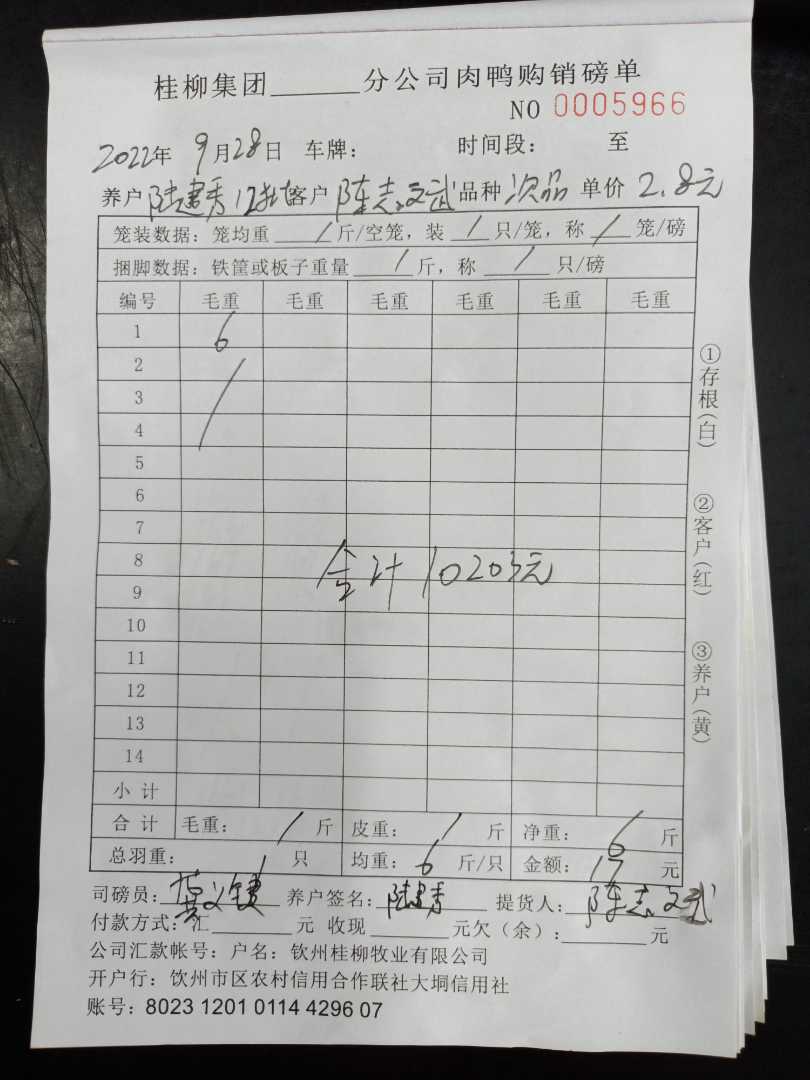 桂柳集团______分公司肉鸭购销磅单
NO 0005966
2022年 9月28日 车牌: 时间段: 至
养户 陆建秀12批 客户 陈志文武 品种 次品 单价 2.8元
笼装数据: 笼均重 / 斤/空笼, 装 / 只/笼, 称 / 笼/磅
捆脚数据: 铁筐或板子重量 / 斤, 称 / 只/磅
编号 毛重 毛重 毛重 毛重 毛重 毛重
1 6
2 /
3
4
5
6
7
8
合计10203元
9
10
11
12
13
14
小计
合计 毛重: / 斤 皮重: / 斤 净重: 6 斤
总羽重: 1 只 均重: 6 斤/只 金额: 17 元
司磅员: 养户签名: 陆建秀 提货人: 陈志文武
付款方式: 汇______元 收现______元欠(余):______元
公司汇款帐号: 户名: 钦州桂柳牧业有限公司
开户行: 钦州市区农村信用合作联社大垌信用社
账号: 8023 1201 0114 4296 07
①存根(白)
②客户(红)
③养户(黄)